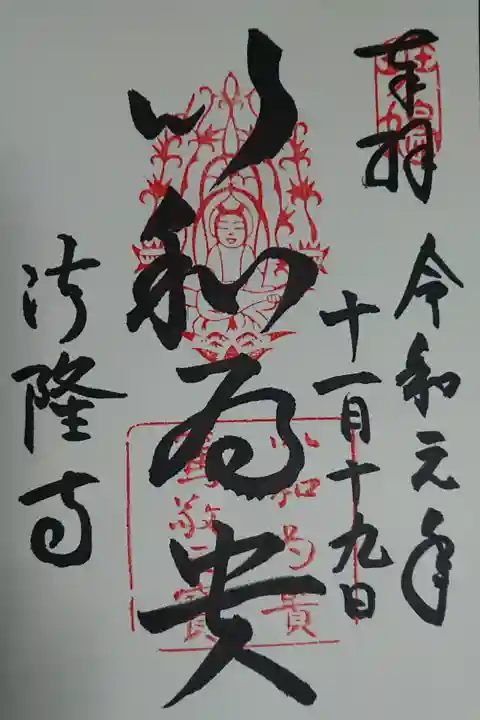 奉拝
令和元年
十一月十九日
以和為貴
以和為貴
篤敬三寳
法隆寺